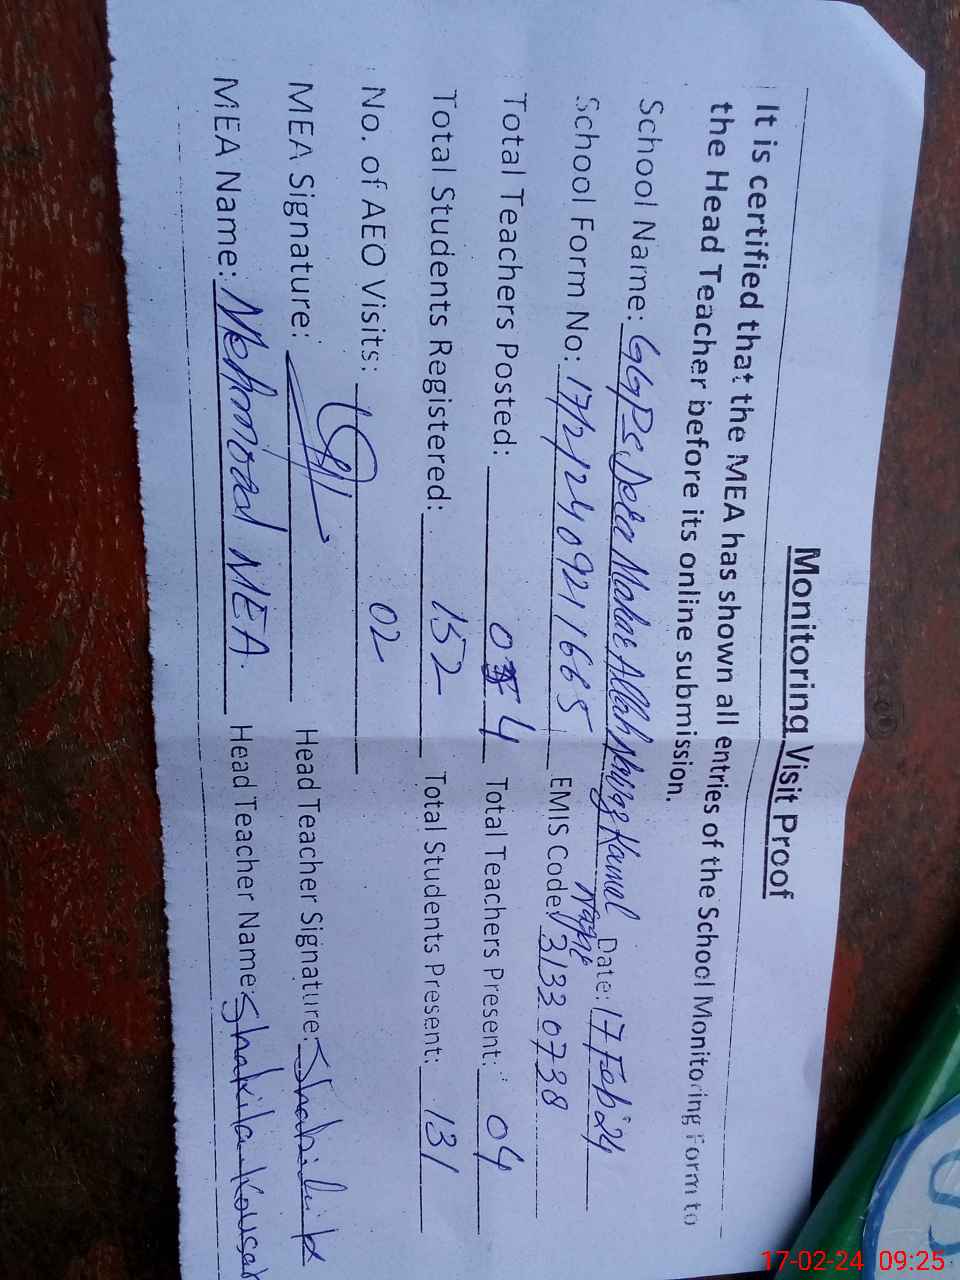 Monitoring Visit Proof
It is certified that the MEA has shown all entries of the School Monitoring Form to
the Head Teacher before its online submission.
School Name: GGPS Allah Kamal Date: 17 Feb 24
School Form No: 17212409211665 EMIS Code: 31330738
Total Teachers Posted: 04 Total Teachers Present: 04
Total Students Registered: 152 Total Students Present: 131
No. of AEO Visits: 02
MEA Signature: Head Teacher Signature:
MEA Name: Mehmood MEA Head Teacher Name: Shakila Kousar
17-02-24 09:25